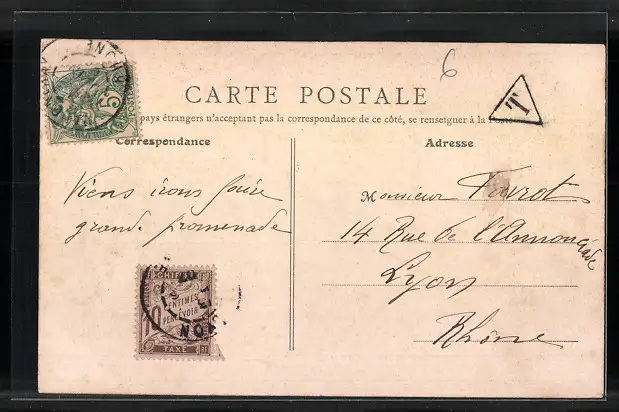 6
CARTE POSTALE
T
pays étrangers n'acceptant pas la correspondance de ce côté, se renseigner à la Poste
Correspondance
Adresse
Viens irons faire
grande promenade
Monsieur
14 Rue de l'Annonciade
Lyon
Rhône
5
RHONE
CHIFFRE
10
CENTIMES
À PERCEVOIR
TAXE
LYON